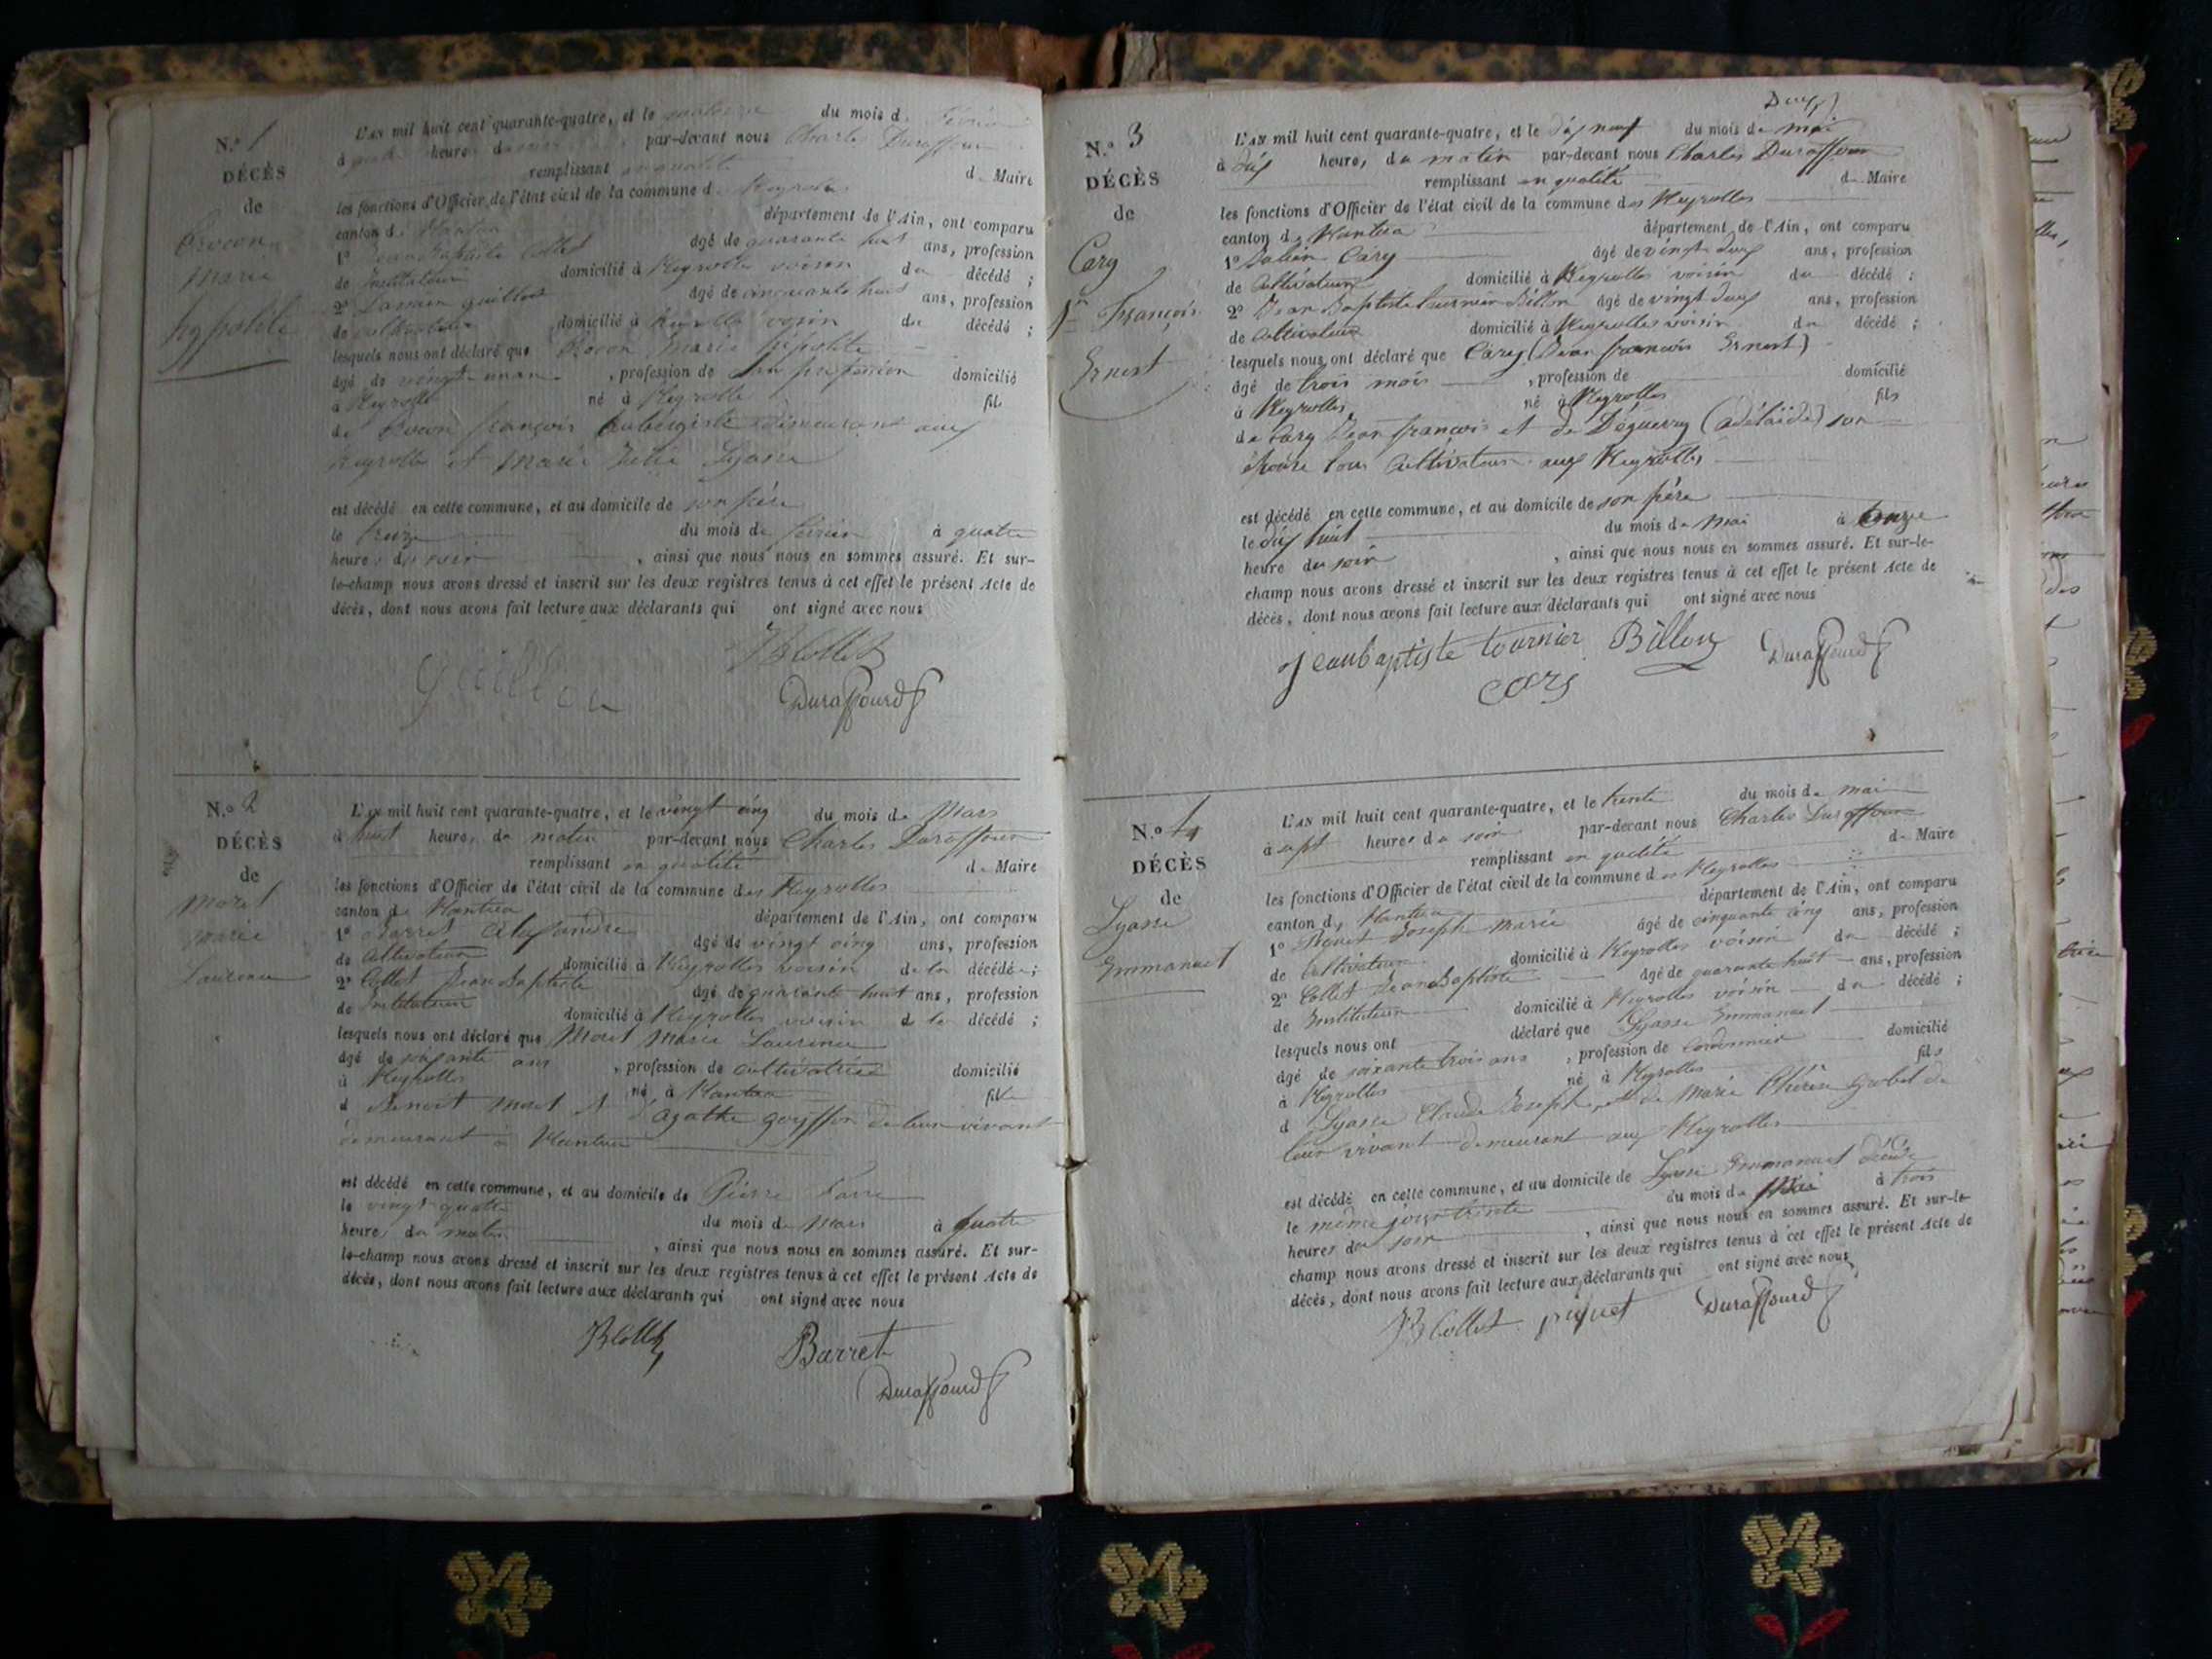 N.º 1
DÉCÈS
de
Marie
hypolite
L'AN mil huit cent quarante-quatre, et le quatorze du mois de février
à heures du par-devant nous Charles Duraffour
remplissant en qualité de Maire
les fonctions d'Officier de l'état civil de la commune des Neyrolles
canton de Nantua département de l'Ain, ont comparu
1º Jean Baptiste Collet âgé de quarante huit ans, profession
de Instituteur domicilié à Neyrolles voisin du décédé ;
2º guillon âgé de cinquante huit ans, profession
de cultivateur domicilié à Neyrolles voisin du décédé ;
lesquels nous ont déclaré que Marie hypolite
âgé de vingt un ans, profession de sans profession domicilié
à Neyrolles né à Neyrolles fils
de françois aubergiste demeurant aux
neyrolles et Marie Julie Lyasse
est décédé en cette commune, et au domicile de son père
le treize du mois de février à quatre
heures du soir, ainsi que nous nous en sommes assuré. Et sur-
le-champ nous avons dressé et inscrit sur les deux registres tenus à cet effet le présent Acte de
décès, dont nous avons fait lecture aux déclarants qui ont signé avec nous
JBCollet
guillon
Duraffourd
N.º 2
DÉCÈS
de
Moret
marie
Laurence
L'AN mil huit cent quarante-quatre, et le vingt cinq du mois de Mars
à huit heures du matin par-devant nous Charles Duraffour
remplissant en qualité de Maire
les fonctions d'Officier de l'état civil de la commune des Neyrolles
canton de Nantua département de l'Ain, ont comparu
1º Barret Alexandre âgé de vingt cinq ans, profession
de Cultivateur domicilié à Neyrolles voisin de la décédée ;
2º Collet Jean Baptiste âgé de quarante huit ans, profession
de Instituteur domicilié à Neyrolles voisin de la décédé ;
lesquels nous ont déclaré que Moret Marie Laurence
âgé de soixante ans, profession de cultivatrice domicilié
à Neyrolles né à Nantua fille
d Benoit Moret et d'agathe goyffon de leur vivant
demeurant à Nantua
est décédé en cette commune, et au domicile de Pierre
le vingt quatre du mois de Mars à quatre
heures du matin, ainsi que nous nous en sommes assuré. Et sur-
le-champ nous avons dressé et inscrit sur les deux registres tenus à cet effet le présent Acte de
décès, dont nous avons fait lecture aux déclarants qui ont signé avec nous
JBCollet
Barret
Duraffourd
Deux
N.º 3
DÉCÈS
de
Cary
Jn François
Ernest
L'AN mil huit cent quarante-quatre, et le dix neuf du mois de mai
à dix heures du matin par-devant nous Charles Duraffour
remplissant en qualité de Maire
les fonctions d'Officier de l'état civil de la commune des Neyrolles
canton de Nantua département de l'Ain, ont comparu
1º Cary âgé de vingt deux ans, profession
de Cultivateur domicilié à Neyrolles voisin du décédé ;
2º Jean Baptiste tournier Billon âgé de vingt deux ans, profession
de Cultivateur domicilié à Neyrolles voisin du décédé ;
lesquels nous ont déclaré que Cary (Jean françois Ernest)
âgé de trois mois, profession de domicilié
à Neyrolles, né à Neyrolles fils
de Cary Jean françois et de (adélaïde) son
épouse tous Cultivateurs aux Neyrolles
est décédé en cette commune, et au domicile de son père
le dix huit du mois de Mai à Onze
heure du soir, ainsi que nous nous en sommes assuré. Et sur-le-
champ nous avons dressé et inscrit sur les deux registres tenus à cet effet le présent Acte de
décès, dont nous avons fait lecture aux déclarants qui ont signé avec nous
jeanbaptiste tournier Billon Duraffourd
cary
N.º 4
DÉCÈS
de
Lyasse
Emmanuel
L'AN mil huit cent quarante-quatre, et le trente du mois de mai
à sept heures du soir par-devant nous Charles Duraffour
remplissant en qualité de Maire
les fonctions d'Officier de l'état civil de la commune des Neyrolles
canton de Nantua département de l'Ain, ont comparu
1º Piquet Joseph Marie âgé de cinquante cinq ans, profession
de Cultivateur domicilié à Neyrolles voisin du décédé ;
2º Collet Jean Baptiste âgé de quarante huit ans, profession
de Instituteur domicilié à Neyrolles voisin du décédé ;
lesquels nous ont déclaré que Lyasse Emmanuel
âgé de soixante trois ans, profession de Cordonnier domicilié
à Neyrolles né à Neyrolles fils
d Lyasse Claude Joseph, et de Marie Thérèse gobet de
leur vivant demeurant aux Neyrolles
est décédé en cette commune, et au domicile de Lyasse Emmanuel
le même jour trente du mois de Mai à trois
heures du soir, ainsi que nous nous en sommes assuré. Et sur-le-
champ nous avons dressé et inscrit sur les deux registres tenus à cet effet le présent Acte de
décès, dont nous avons fait lecture aux déclarants qui ont signé avec nous
JBCollet piquet Duraffourd